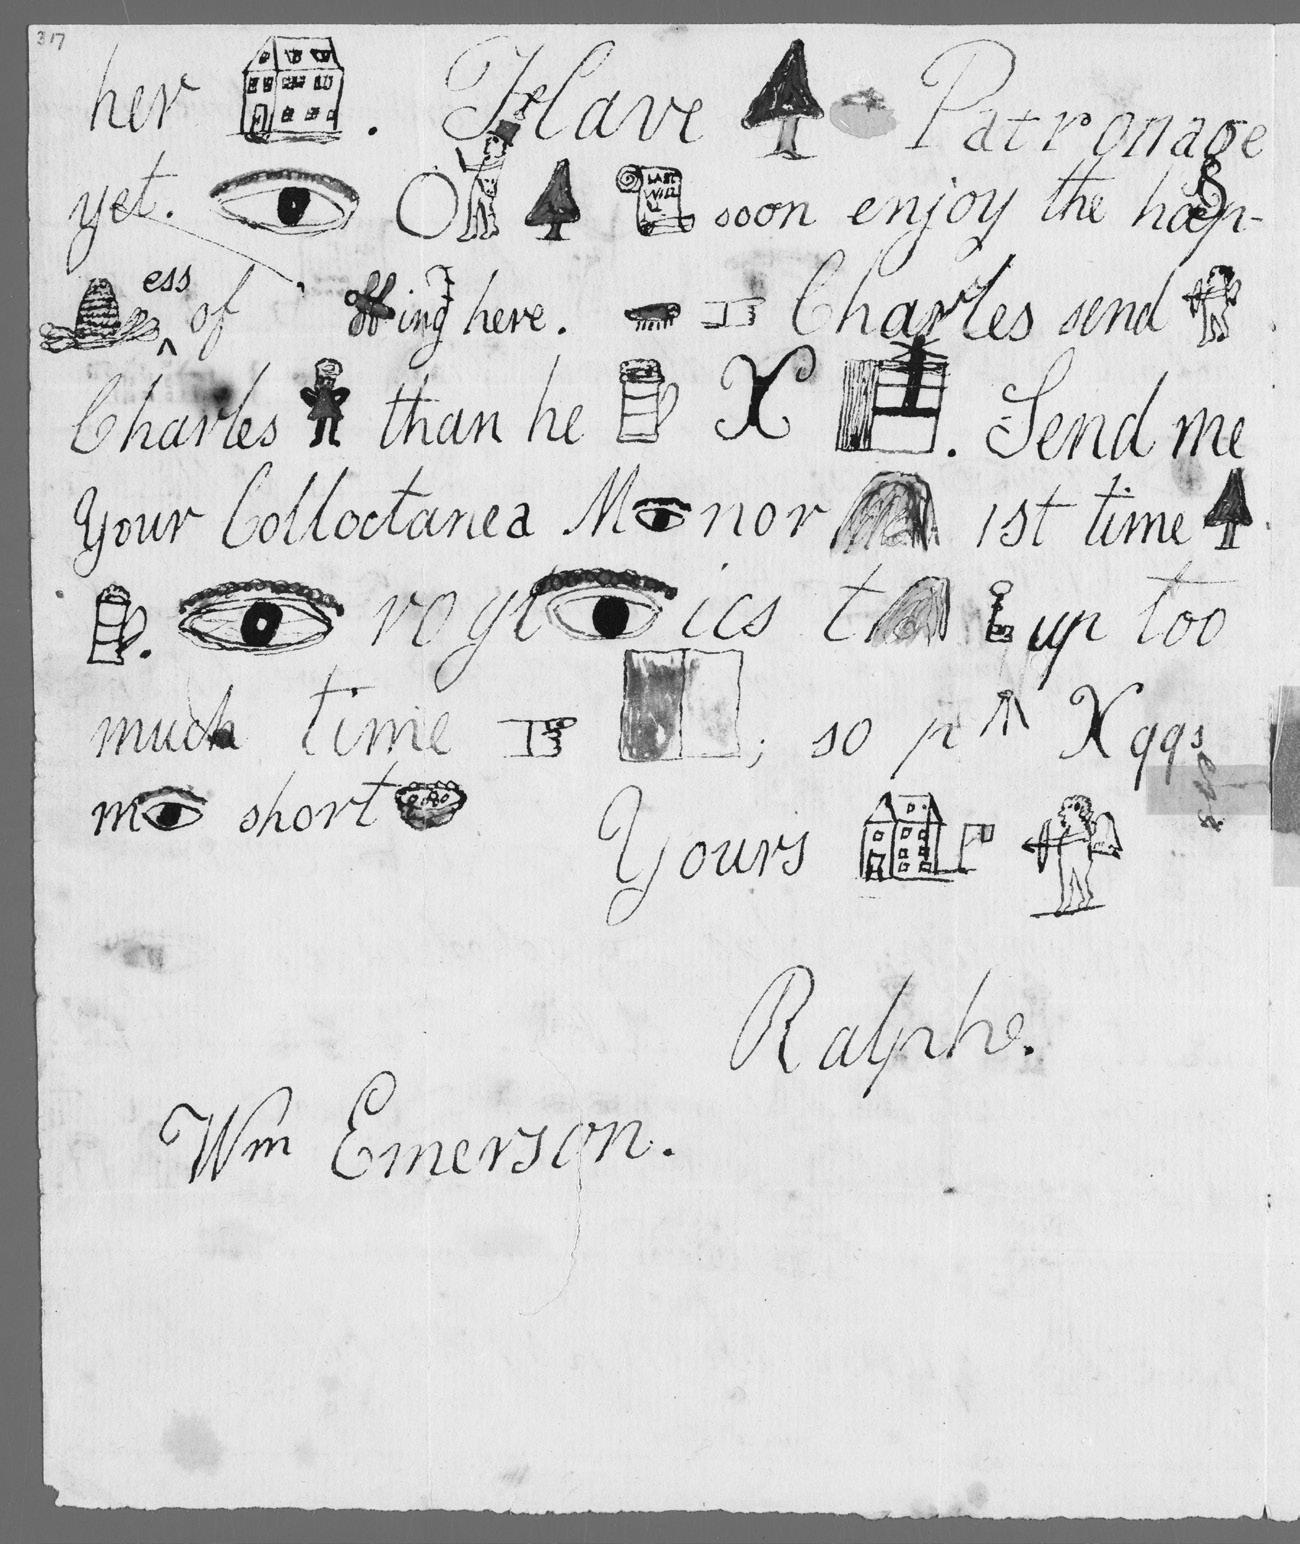 317
her . Have Patronage
yet. O LAST WILL soon enjoy the hap-
ess of ing here. Charles send
Charles than he X . Send me
Your Colloctanea M nor 1st time
. rogl ics t up too
much time ; so p X qqs
m short
Yours
Ralphe.
Wm Emerson.